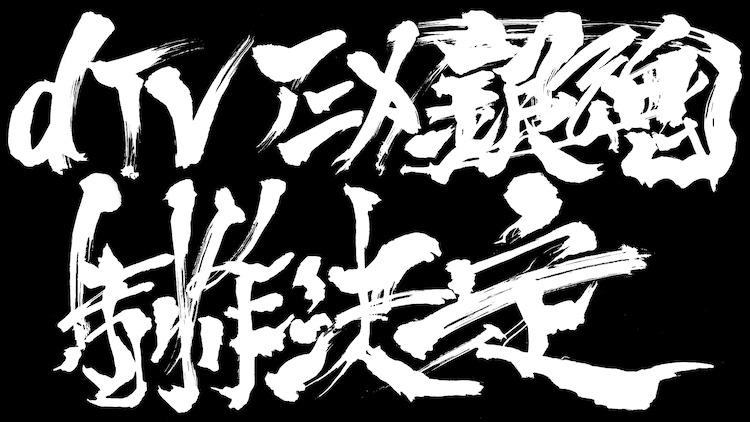 dTVアニメ銀魂
制作決定